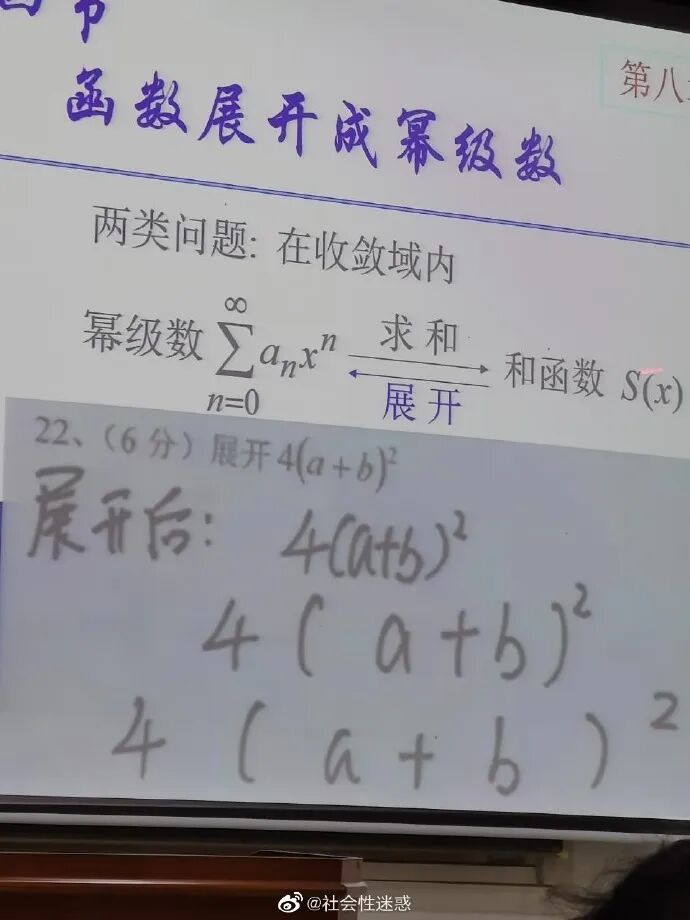 四节
第八
函数展开成幂级数
两类问题: 在收敛域内
幂级数 ∑_{n=0}^{∞} a_n x^n 求和 展开 和函数 S(x)
22、(6 分) 展开 4(a+b)²
展开后: 4(a+b)²
4 ( a + b )²
4 ( a + b ) ²
@社会性迷惑